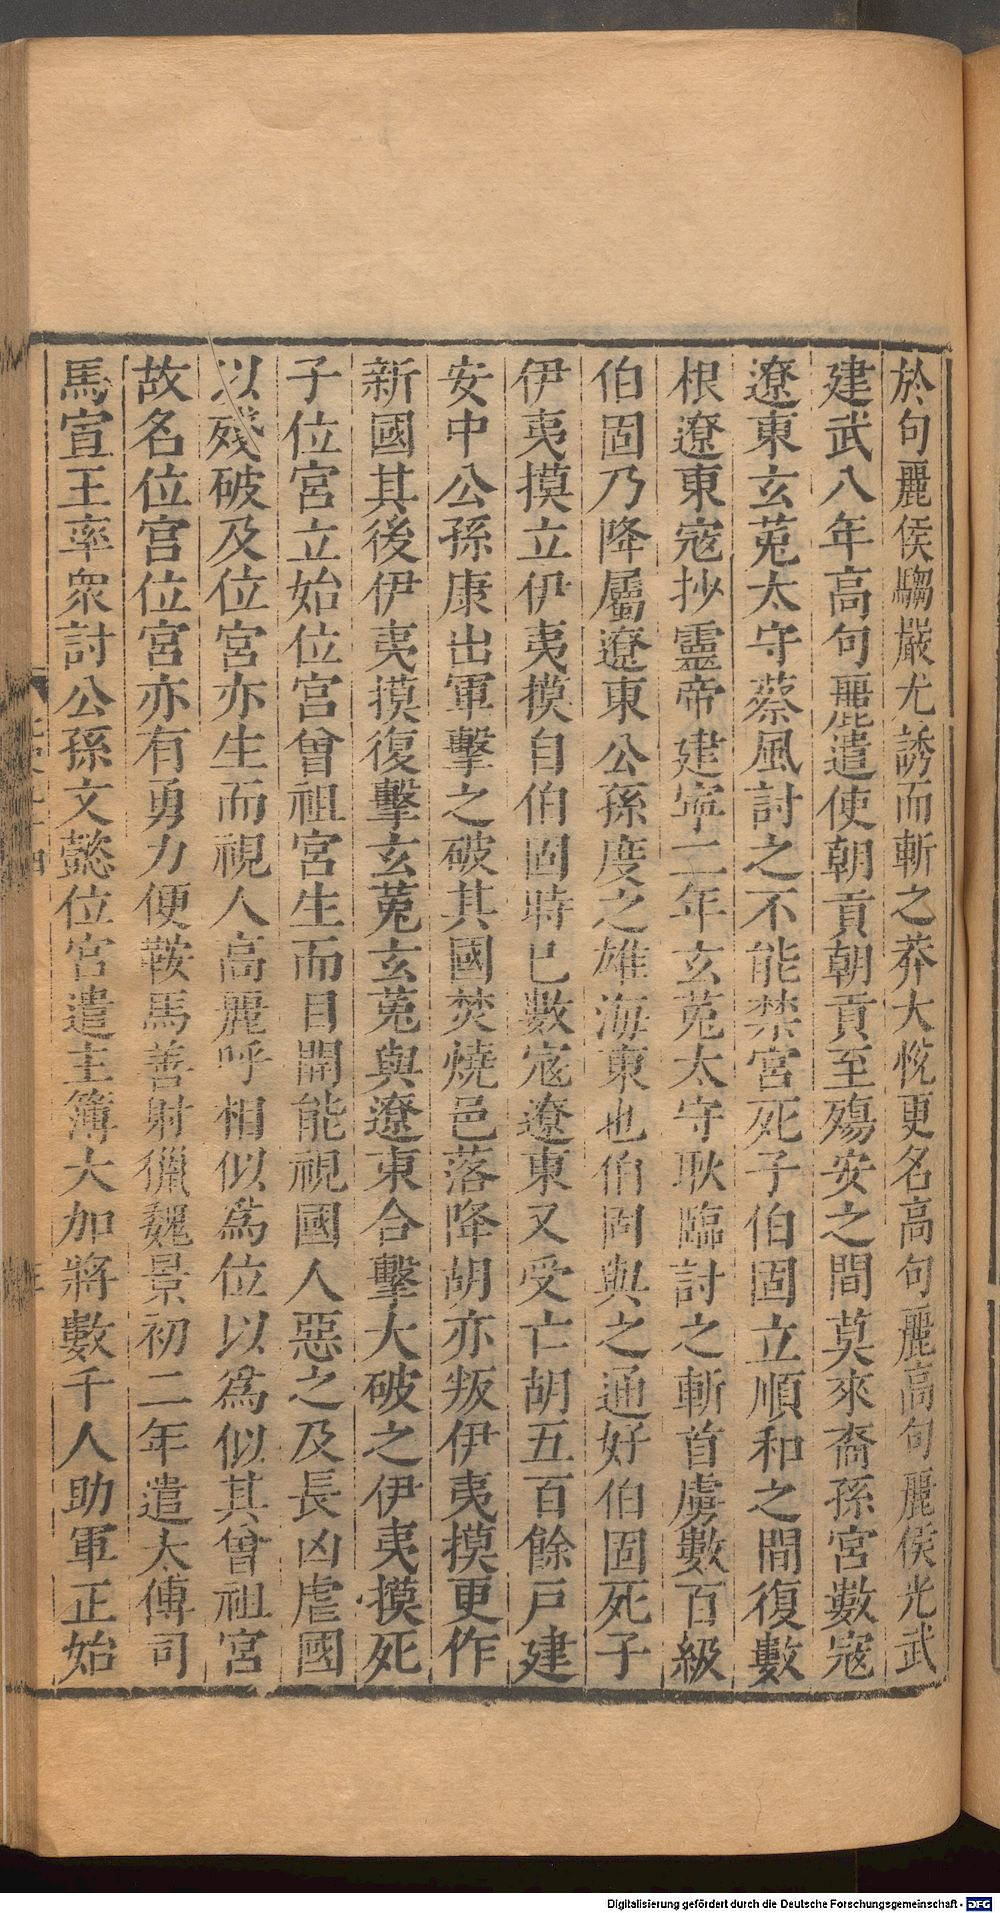 於句麗侯騶嚴尤誘而斬之莽大悅更名高句麗高句麗侯光武
建武八年高句麗遣使朝貢朝貢至殤安之間莫來裔孫宮數寇
遼東玄菟太守蔡風討之不能禁宮死子伯固立順和之間復數
根遼東寇抄靈帝建寧二年玄菟太守耿臨討之斬首虜數百級
伯固乃降屬遼東公孫度之雄海東也伯固與之通好伯固死子
伊夷摸立伊夷摸自伯固時已數寇遼東又受亡胡五百餘戶建
安中公孫康出軍擊之破其國焚燒邑落降胡亦叛伊夷摸更作
新國其後伊夷摸復擊玄菟玄菟與遼東合擊大破之伊夷摸死
子位宮立始位宮曾祖宮生而目開能視國人惡之及長凶虐國
以殘破及位宮亦生而視人高麗呼相似為位以為似其曾祖宮
故名位宮位宮亦有勇力便鞍馬善射獵魏景初二年遣太傅司
馬宣王率眾討公孫文懿位宮遣主簿大加將數千人助軍正始
Digitalisierung gefördert durch die Deutsche Forschungsgemeinschaft - DFG